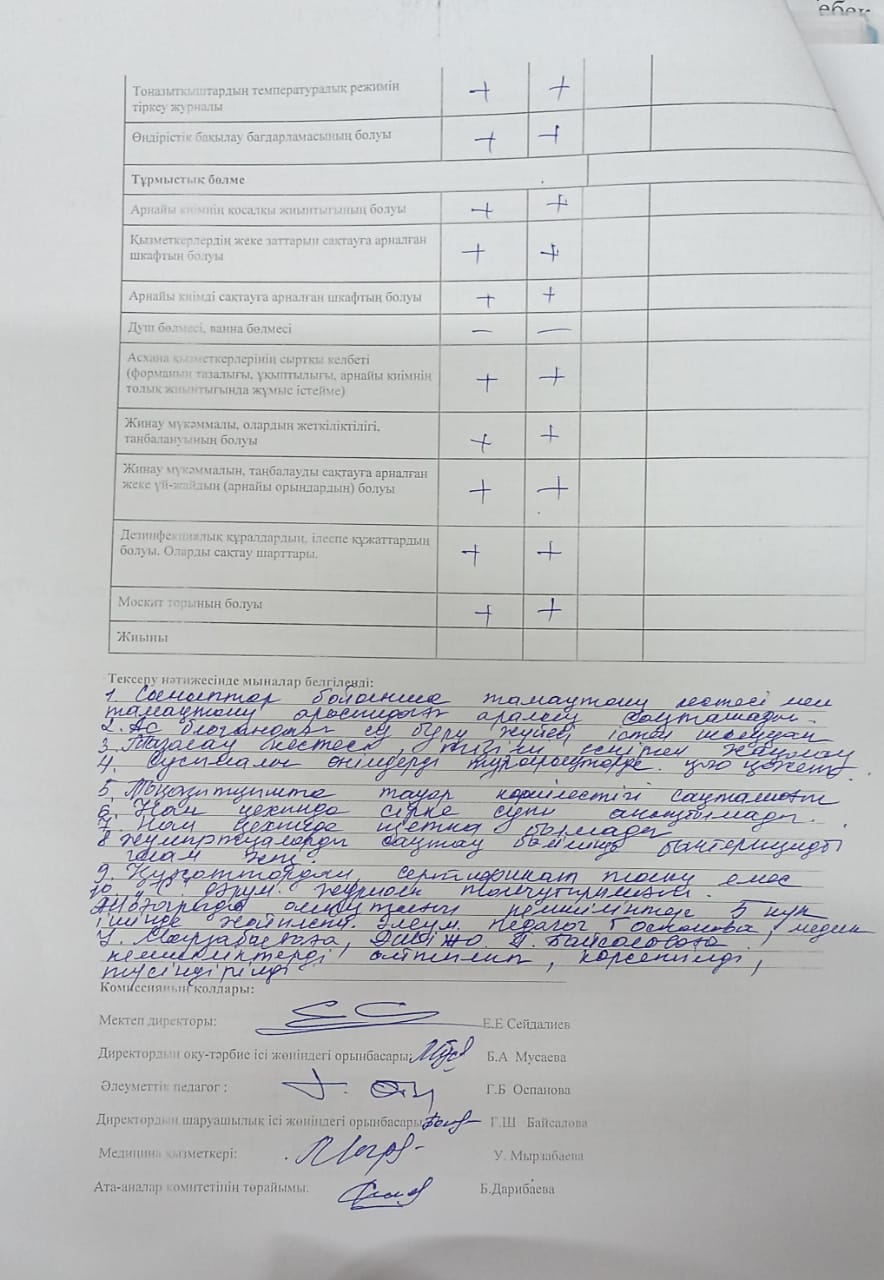 ебек
Тоңазытқыштардың температуралық режимін + +
тіркеу журналы
Өндірістік бақылау бағдарламасының болуы + +
Тұрмыстық бөлме
Арнайы киімнің қосалқы жиынтығының болуы + +
Қызметкерлердің жеке заттарын сақтауға арналған + +
шкафтың болуы
Арнайы киімді сақтауға арналған шкафтың болуы + +
Душ бөлмесі, ванна бөлмесі — —
Асхана қызметкерлерінің сыртқы келбеті
(форманың тазалығы, ұқыптылығы, арнайы киімнің + +
толық жиынтығында жұмыс істейме)
Жинау мүкәммалы, олардың жеткіліктілігі, + +
таңбалануының болуы
Жинау мүкәммалын, таңбалауды сақтауға арналған + +
жеке үй-жайдың (арнайы орындардың) болуы
Дезинфекциялық құралдардың, ілеспе құжаттардың + +
болуы. Оларды сақтау шарттары.
Москит торының болуы + +
Жиыны
Тексеру нәтижесінде мыналар белгіленді:
1. Сыныптар бойынша тамақтану кестесі мен
тамақтану арасындағы аралық сақталмаған.
2. Ас су бұру жүйесі істен
3. Тазалау кестесі, тізімі
4. өнімдерді қою қажет.
5. Тоңазытқышта тауар көршілестігі сақталмаған
6. Нан цехында сірке суы анықталмады.
7. Нан цехында щетка болмады
8 сақтау бөлмеде бактерицидті
шам жоқ
9. сертификат толық емес
10. журналы толтырылмаған.
кемшіліктер 5 күн
ішінде Әлеум. педагог Г Оспанова, медик
У. Мырзабаева, Г. Байсаловаға
кемшіліктерді айтылып, көрсетілді,
түсіндірілді
Комиссияның қолдары:
Мектеп директоры: Е.Е Сейдалиев
Директордың оқу-тәрбие ісі жөніндегі орынбасары: Б.А Мусаева
Әлеуметтік педагог : Г.Б Оспанова
Директордың шаруашылық ісі жөніндегі орынбасары Г.Ш Байсалова
Медицина қызметкері: У. Мырзабаева
Ата-аналар комитетінің төрайымы: Б.Дарибаева